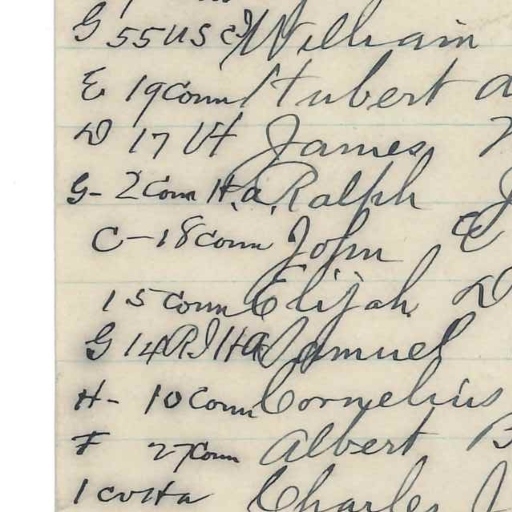 G 55 US C William
E 19 Conn Hubert a
D 17 Vt James
G - 2 Conn H.a. Ralph J
C - 18 Conn John E
15 Conn Elijah D
G 14 RI HA Samuel
H - 10 Conn Cornelius
F 27 Conn Albert B
Charles